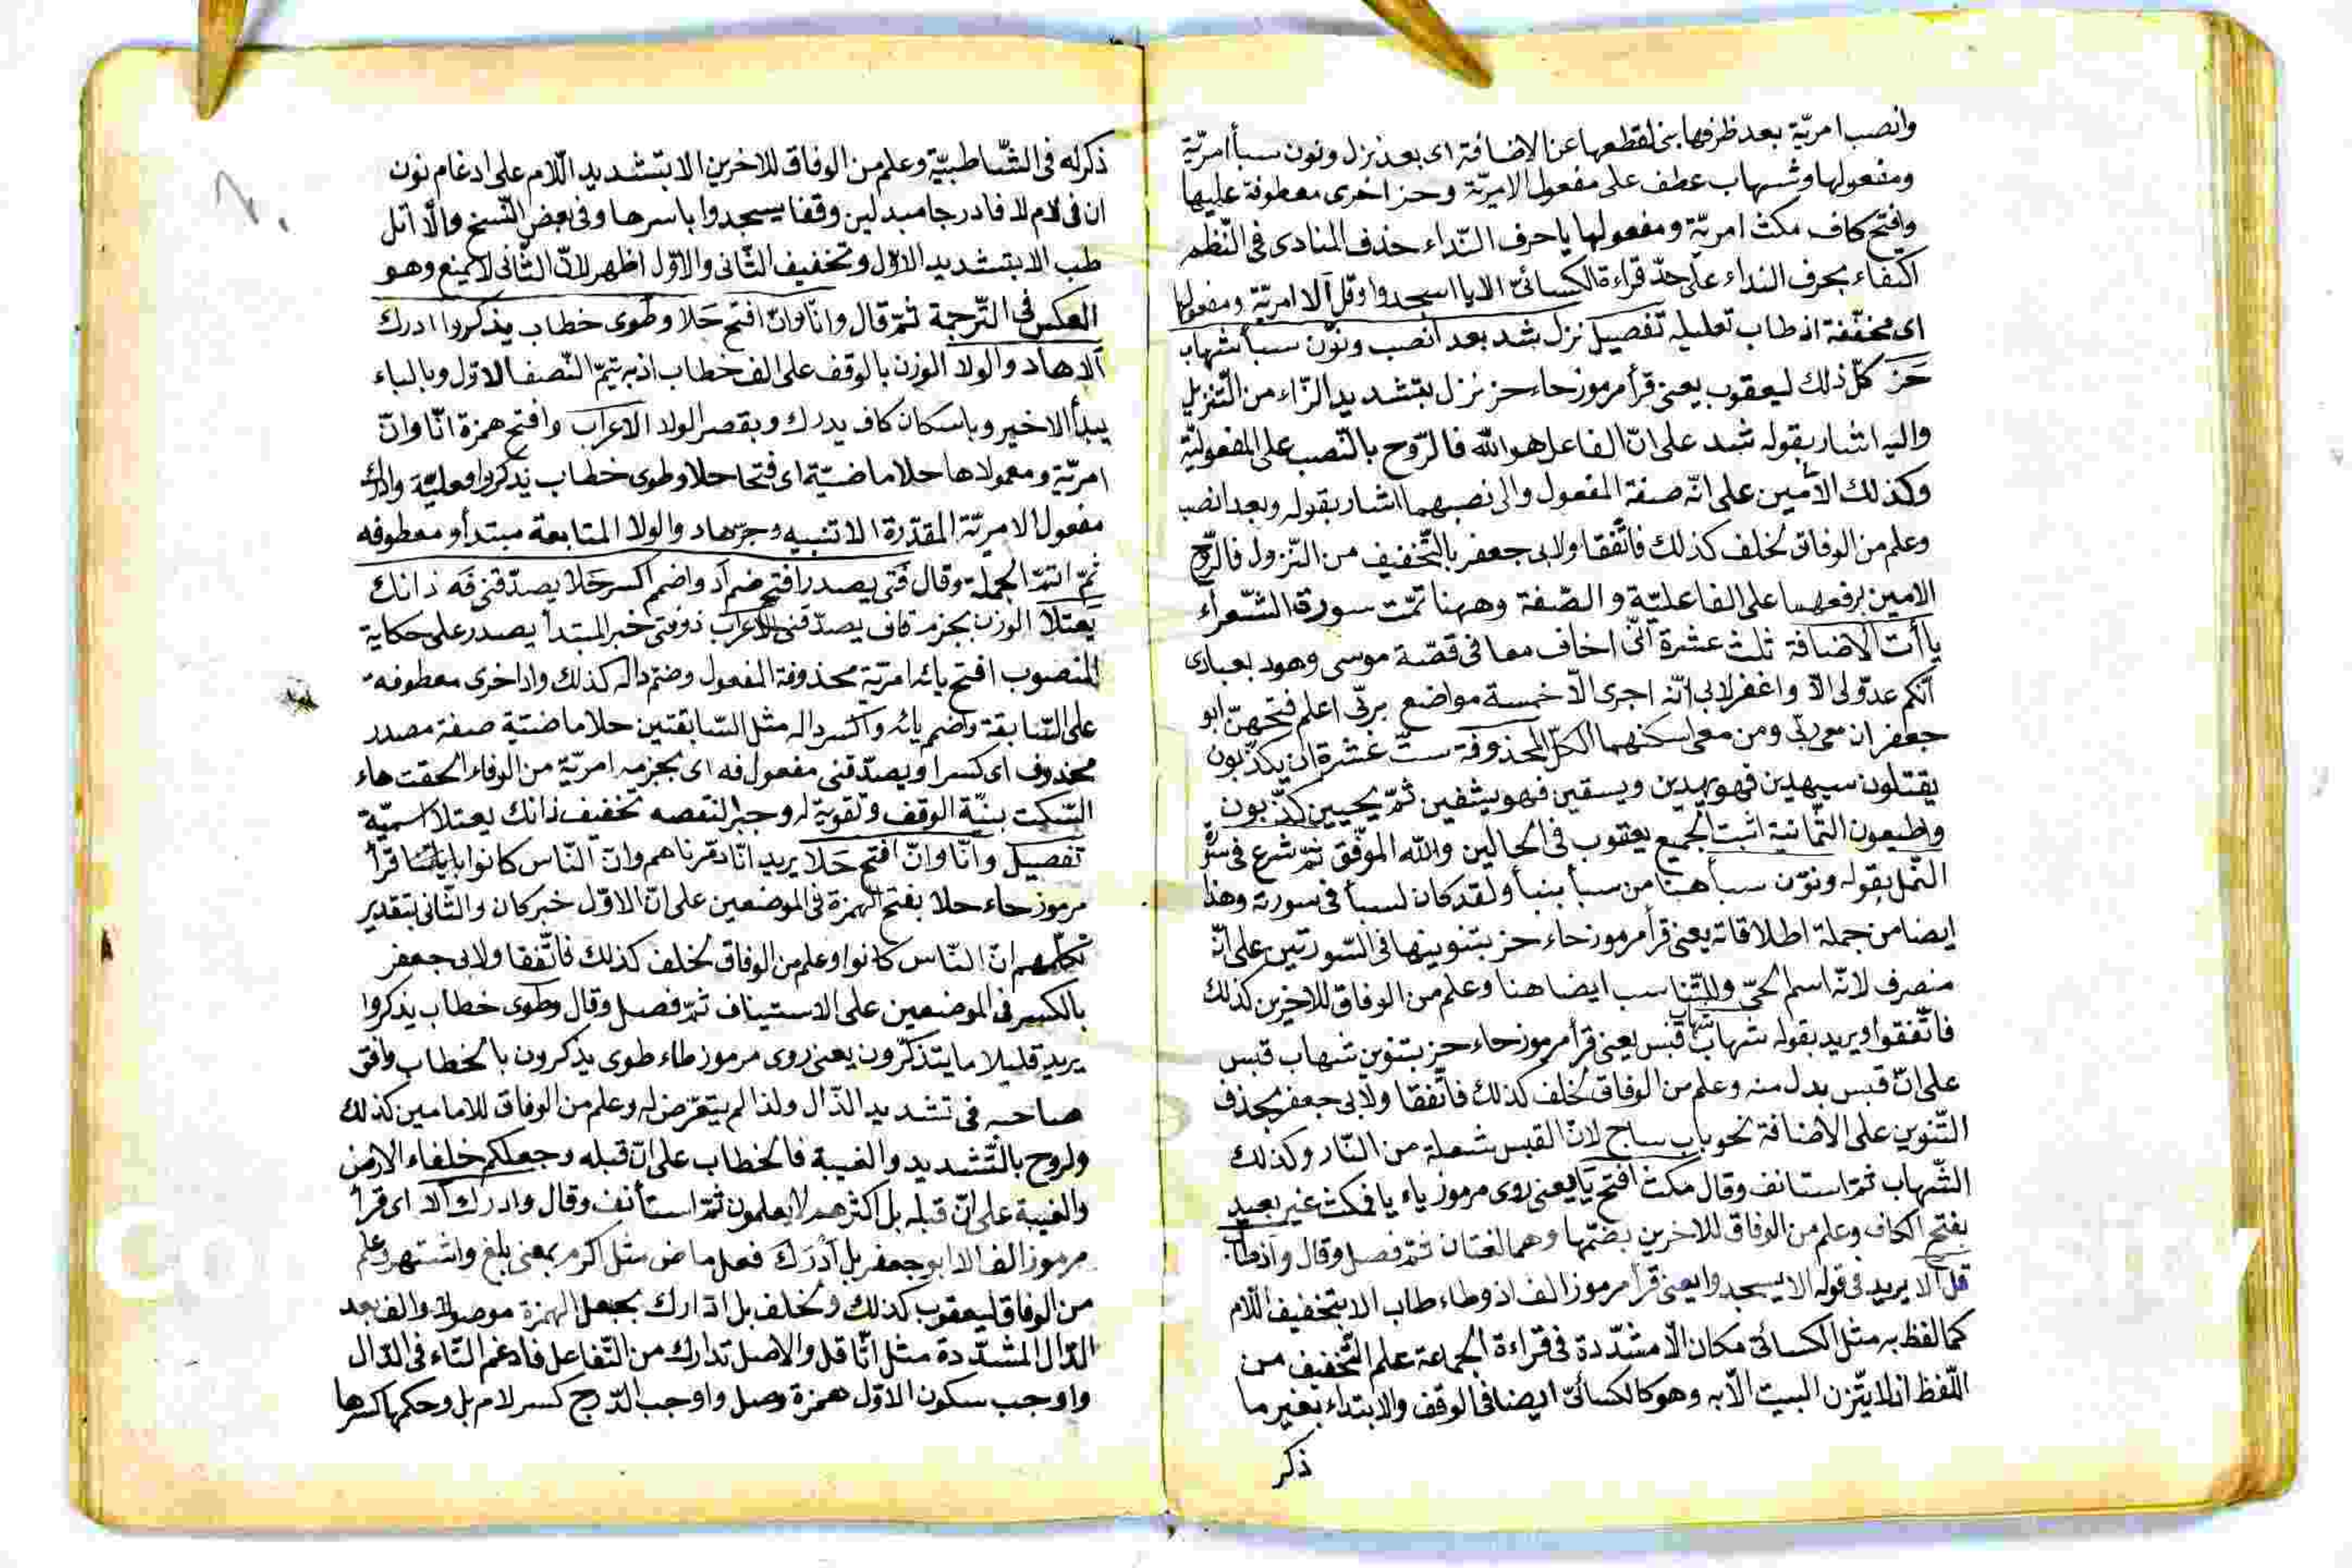 وانصب امريّة بعد ظرفها بنى لقطعها عن الاضافة اى بعد نزل ونون سبأ امريّة
ومفعولها وشهاب عطف على مفعول الامريّة وحز اخرى معطوفة عليها
وافتح كاف مكث امريّة ومفعولها يا حرف النّداء حذف المنادى فى النّظم
اكتفاء بحرف النداء على حدّ قراءة الكسائىّ الا يا اسجدوا وقل ألا امريّة ومفعولها
اى مخفّفة اذ طاب تعليليه تفصيل نزل شد بعد انصب ونوّن سبأ شهاب
حَز كلّ ذلك ليعقوب يعنى قرأ مرموز حاء حز نزل بتشديد الزّاء من التّنزيل
واليه اشار بقوله شد على انّ الفاعل هو الله فالرّوح بالنّصب على المفعوليّة
وكذلك الأمين على انّه صفة المفعول والى نصبهما اشار بقوله وبعد انصب
وعلم من الوفاق لخلف كذلك فاتّفقا ولابى جعفر بالتّخفيف من النّزول فالرّوح
الامين برفعهما على الفاعليّة والصّفة وههنا تمّت سورة الشّعرآء
ياآت الاضافة ثلث عشرة انّى اخاف معا فى قصّة موسى وهود بعبادى
انّكم عدوّلى الّا واغفر لابى انّه اجرى الّا خمسة مواضع بربّى اعلم فتحهنّ ابو
جعفر ان معى ربّى ومن معى اسكنهما الكلّ المحذوفة ستّ عشرة ان يكذّبون
يقتلون سيهدين فهو يهدين ويسقين فهو يشفين ثمّ يحيين كذّبون
واطيعون الثّمانية اثبت الجميع يعقوب فى الحالين والله الموفّق ثمّ شرع فى سورة
النّمل بقوله ونوّن سبأ هنا من سبأ بنبأ ولقد كان لسبأ فى سورته وهذا
ايضا من جملة اطلاقاته يعنى قرأ مرموز حاء حز بتنوينها فى السّورتين على انّه
منصرف لانّه اسم الحىّ وللتّناسب ايضا هنا وعلم من الوفاق للاخرين كذلك
فاتّفقوا ويريد بقوله شهاب شهاب قبس يعنى قرأ مرموز حاء حز بتنوين شهاب قبس
على انّ قبس بدل منه وعلم من الوفاق لخلف كذلك فاتّفقا ولابى جعفر بحذف
التّنوين على الاضافة نحو باب ساج لانّ القبس شعلة من النّار وكذلك
الشّهاب ثمّ استانف وقال مكث افتح يا يعنى روى مرموز ياء يا فمكث غير بعيد
بفتح الكاف وعلم من الوفاق للاخرين بضمّها وهما لغتان ثمّ فصل وقال واذ طاب
قل الا يريد فى قوله الا يسجدوا يعنى قرأ مرموز الف اذ وطاء طاب الا بتخفيف اللّام
كما لفظ به مثل الكسائىّ مكان الّا مشدّدة فى قراءة الجماعة علم التّخفيف من
اللّفظ اذ لا يتّزن البيت الّا به وهو كالكسائىّ ايضا فى الوقف والابتداء بغير ما
ذكر
ذكر له فى الشّاطبيّة وعلم من الوفاق للاخرين الا بتشديد اللّام على ادغام نون
ان فى لام لا فادرجا مبدلين وقفا يسجدوا باسرها وفى بعض النّسخ والّا اتل
طب الا بتشديد الاوّل وتخفيف الثّانى والاوّل اظهر لانّ الثّانى لا يمنع وهو
العكس فى التّرجمة ثمّ قال وانّا وانّ افتح حَلا وطوى خطاب يذكروا ادرك
ألا هاد والولا الوزن بالوقف على الف خطاب اذ به يتمّ النّصف الاوّل وبالباء
يبدأ الاخير وباسكان كاف يدرك وبقصر الولا الاعراب وافتح همزة انّا وانّ
امريّة ومعمولاها حلا ماضيّة اى فتحا حلا وطوى خطاب يذكروا فعليّة وادرك
مفعول الامريّة المقدّرة الا تنبيه وجز هاد والولا المتابعة مبتدأ ومعطوفه
ثمّ اتمّ الجملة وقال فتى يصدر افتح ضم اد واضمم اكسر حَلا يصدّقنى فَه ذانك
يعتلا الوزن بجزم قاف يصدّقنى الاعراب ذو فتى خبر المبتدأ يصدر على حكاية
المنصوب افتح يائه امريّة محذوفة المفعول وضمّ داله كذلك واد اخرى معطوفة
على السّابقة واضمم يائه واكسر داله مثل السّابقتين حلا ماضيّة صفة مصدر
محذوف اى كسرا ويصدّقنى مفعول فه اى بجزمه امريّة من الوفاء الحقت هاء
السّكت بنيّة الوقف وتقوية له وجبرا لنقصه تخفيف ذانك يعتلا اسميّة
تفصيل وانّا وانّ افتح حَلا يريد انّا دمّرناهم وانّ النّاس كانوا باياتنا قرأ
مرموز حاء حلا بفتح الهمزة فى الموضعين على انّ الاوّل خبر كان والثّانى بتقدير
تكلّمهم انّ النّاس كانوا وعلم من الوفاق لخلف كذلك فاتّفقا ولابى جعفر
بالكسر فى الموضعين على الاستيناف ثمّ فصل وقال وطوى خطاب يذكروا
يريد قليلا ما يتذكّرون يعنى روى مرموز طاء طوى يذكرون بالخطاب وافق
صاحبه فى تشديد الذّال ولذا لم يتعرّض له وعلم من الوفاق للامامين كذلك
ولروح بالتّشديد والغيبة فالخطاب على انّ قبله وجعلكم خلفاء الارض
والغيبة على انّ قبله بل اكثرهم لا يعلمون ثمّ استأنف وقال وادرك ألا اى قرأ
مرموز الف الا ابو جعفر بل أَدْرَكَ فعل ماض مثل اكرم بمعنى بلغ واشتهر وعلم
من الوفاق ليعقوب كذلك ولخلف بل ادّارك بجعل الهمزة موصولة والف بعد
الدّال المشدّدة مثل اثّاقل والاصل تدارك من التّفاعل فادغم التّاء فى الدّال
واوجب سكون الاوّل همزة وصل واوجب الدّرج كسر لام بل وحكمها كسرها